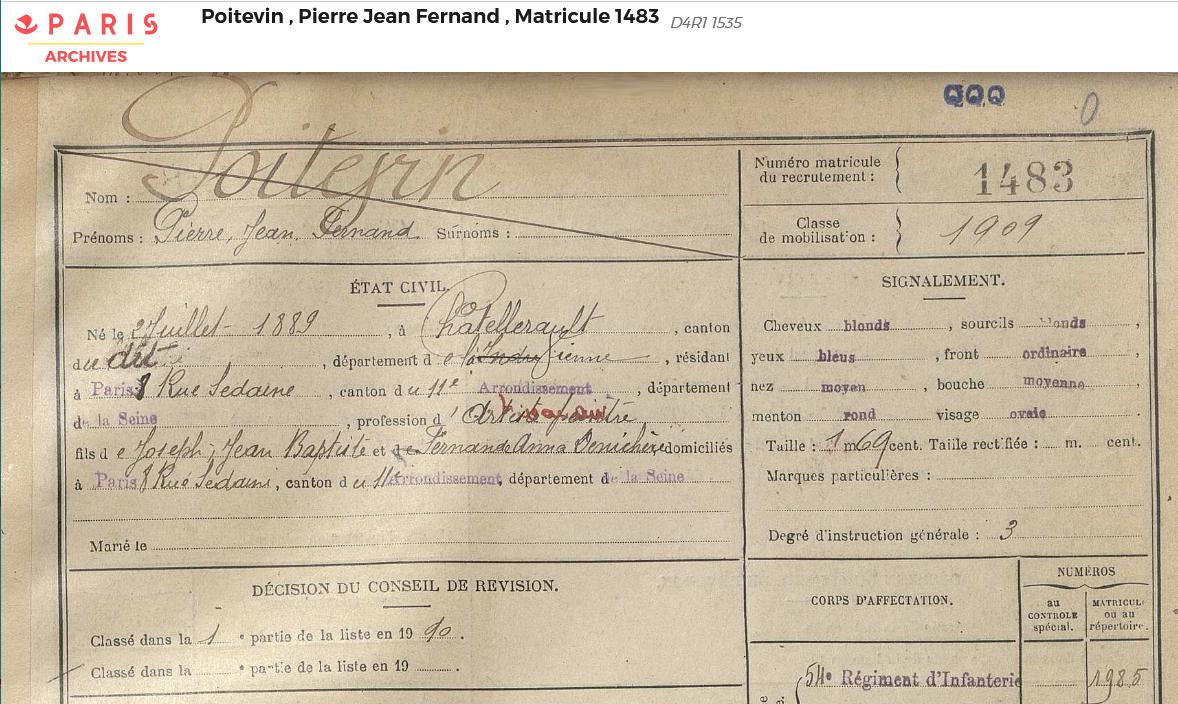 PARIS
ARCHIVES
Poitevin , Pierre Jean Fernand , Matricule 1483 D4R1 1535
QQQ
0
Nom : Poitevin
Prénoms : Pierre, Jean, Fernand Surnoms :
Numéro matricule du recrutement : 1483
Classe de mobilisation : 1909
ÉTAT CIVIL.
Né le 2 Juillet 1889, à Chatellerault, canton
du dit, département de la Indre Vienne, résidant
à Paris 8 Rue Sedaine, canton du 11e Arrondissement, département
de la Seine, profession d' Artiste peintre
fils de Joseph, Jean Baptiste et de Fernande Anna domiciliés
à Paris 8 Rue Sedaine, canton du 11e Arrondissement, département de la Seine
Marié le
SIGNALEMENT.
Cheveux blonds, sourcils blonds,
yeux bleus, front ordinaire,
nez moyen, bouche moyenne,
menton rond visage ovale
Taille : 1 m 69 cent. Taille rectifiée : m. cent.
Marques particulières :
Degré d'instruction générale : 3
DÉCISION DU CONSEIL DE REVISION.
Classé dans la 1 e partie de la liste en 1910.
Classé dans la e partie de la liste en 19 .
CORPS D'AFFECTATION.
NUMÉROS
au CONTROLE spécial.
MATRICULE ou au répertoire.
54e Régiment d'Infanterie
1985